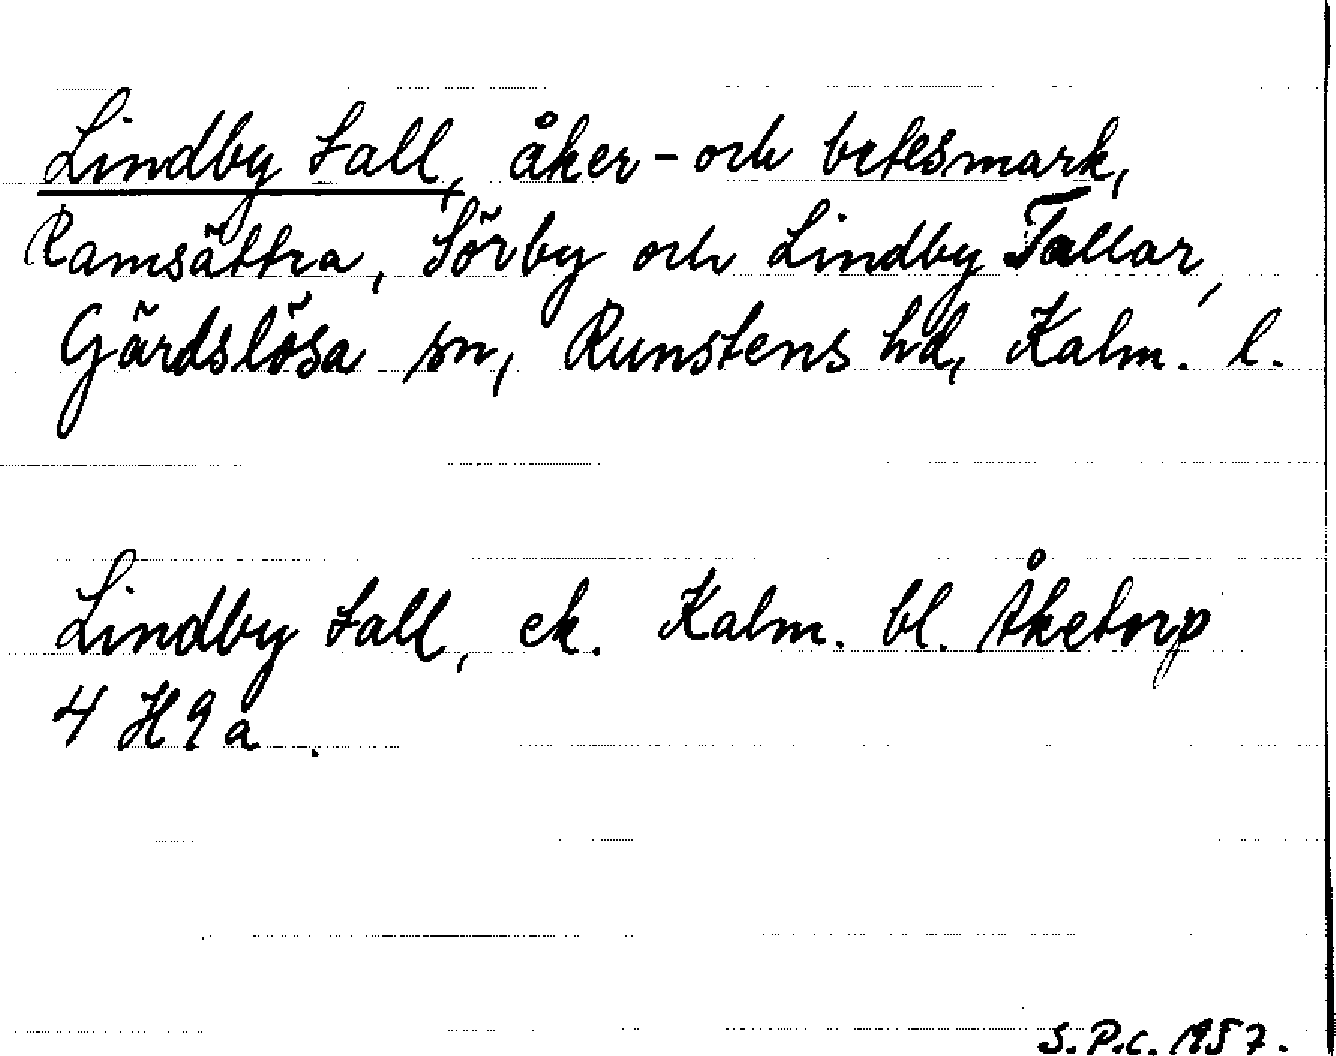 Lindby tall, åker- och betesmark,
Ramsättra, Sörby och Lindby Tallar,
Gärdslösa sn, Runstens hd, Kalm. l.
Lindby tall, ek. Kalm. bl. Åketorp
4 H 9 a .
S.P.C. 1957.